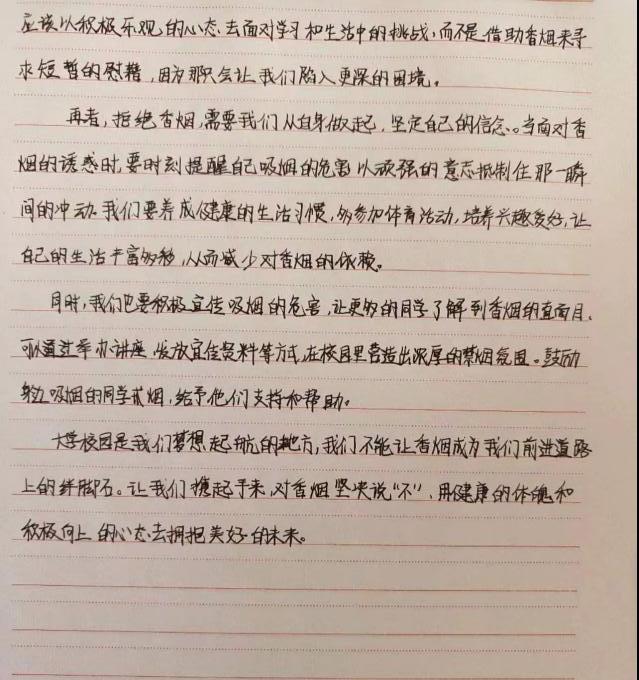 应该以积极乐观的心态去面对学习和生活中的挑战,而不是借助香烟来寻
求短暂的慰藉,因为那只会让我们陷入更深的困境。
再者,拒绝香烟,需要我们从自身做起,坚定自己的信念。当面对香
烟的诱惑时,要时刻提醒自己吸烟的危害以顽强的意志抵制住那一瞬
间的冲动.我们要养成健康的生活习惯,多参加体育活动,培养兴趣爱好,让
自己的生活丰富多彩,从而减少对香烟的依赖。
同时,我们也要积极宣传吸烟的危害,让更多的同学了解到香烟的真面目.
可以通过举办讲座,发放宣传资料等方式,在校园里营造出浓厚的禁烟氛围。鼓励
身边吸烟的同学戒烟,给予他们支持和帮助。
大学校园是我们梦想起航的地方,我们不能让香烟成为我们前进道路
上的绊脚石。让我们携起手来,对香烟坚决说“不”,用健康的体魄和
积极向上的心态去拥抱美好的未来。